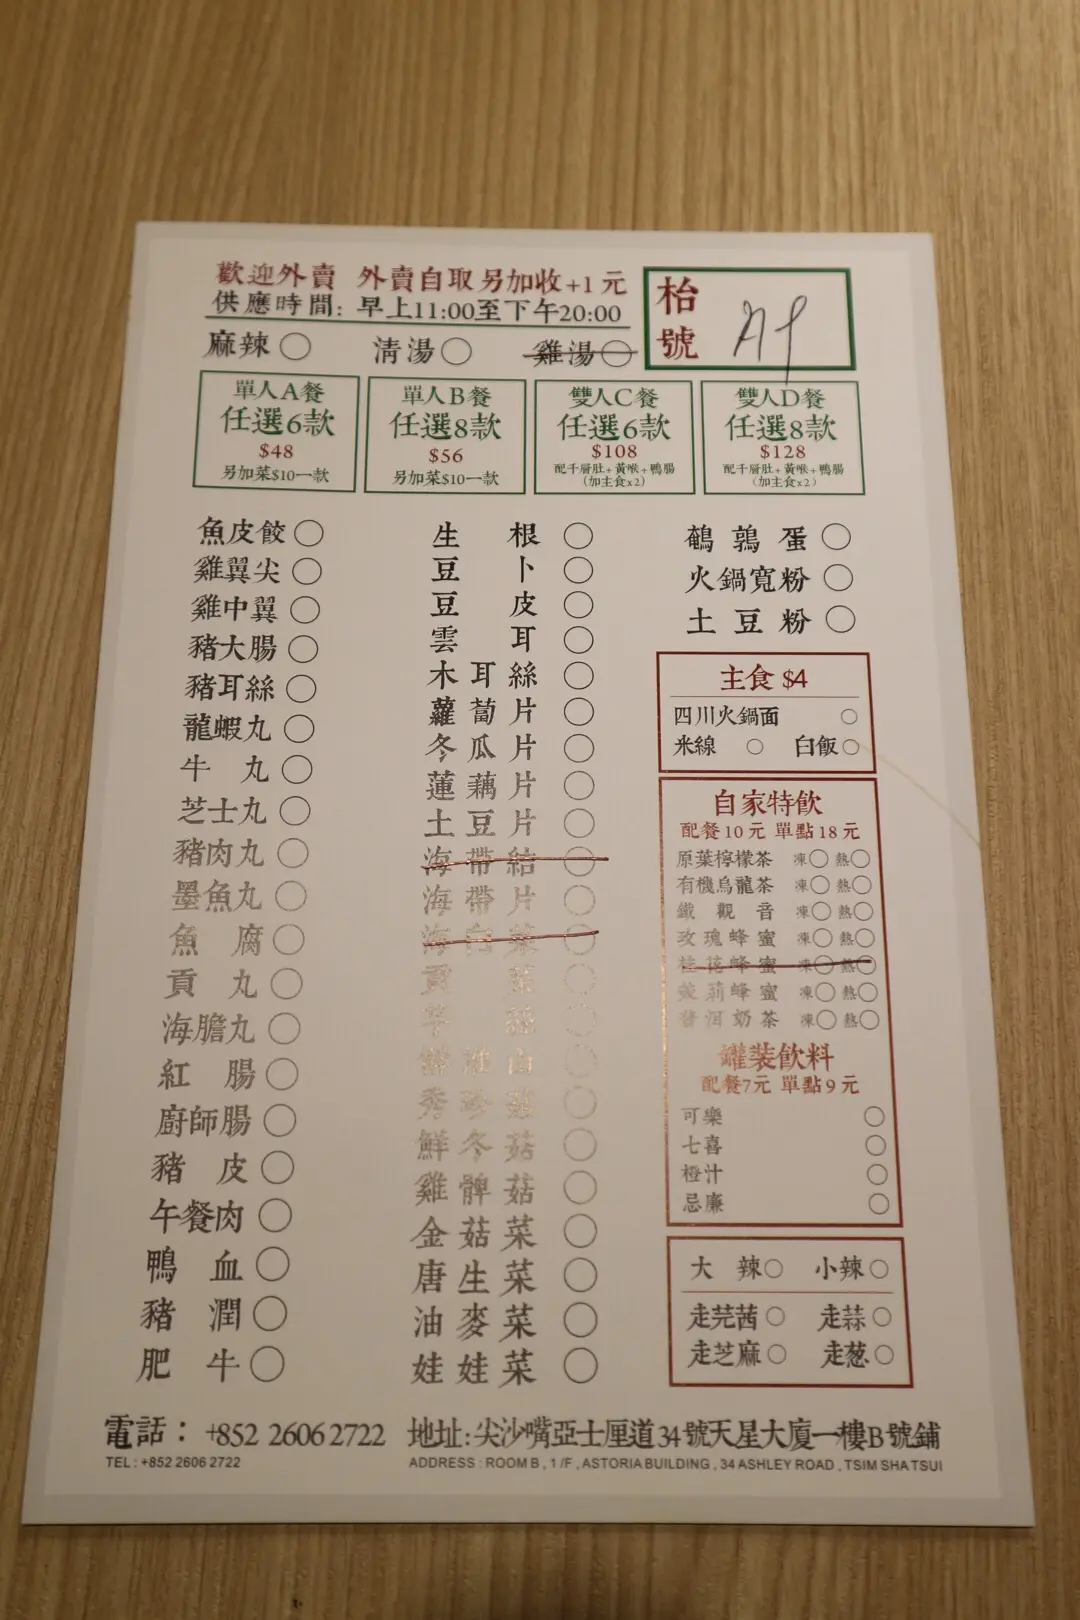 歡迎外賣 外賣自取另加收+1元
供應時間：早上11:00至下午20:00
枱號
麻辣 清湯 雞湯
單人A餐
任選6款
$48
另加菜$10一款
單人B餐
任選8款
$56
另加菜$10一款
雙人C餐
任選6款
$108
配千層肚+黃喉+鴨腸
(加主食x2)
雙人D餐
任選8款
$128
配千層肚+黃喉+鴨腸
(加主食x2)
魚皮餃
雞翼尖
雞中翼
豬大腸
豬耳絲
龍蝦丸
牛丸
芝士丸
豬肉丸
墨魚丸
魚腐
貢丸
海膽丸
紅腸
廚師腸
豬皮
午餐肉
鴨血
豬潤
肥牛
生根
豆卜
豆皮
雲耳
木耳絲
蘿蔔片
冬瓜片
蓮藕片
土豆片
海帶結
海帶片
海白菜
貢菜
秀珍菇
鮮冬菇
雞髀菇
金菇菜
唐生菜
油麥菜
娃娃菜
鵪鶉蛋
火鍋寬粉
土豆粉
主食 $4
四川火鍋面
米線 白飯
自家特飲
配餐10元 單點18元
原葉檸檬茶 凍 熱
有機烏龍茶 凍 熱
鐵觀音 凍 熱
玫瑰蜂蜜 凍 熱
桂花蜂蜜 凍 熱
茉莉蜂蜜 凍 熱
普洱奶茶 凍 熱
罐裝飲料
配餐7元 單點9元
可樂
七喜
橙汁
忌廉
大辣 小辣
走芫茜 走蒜
走芝麻 走葱
電話：+852 2606 2722
TEL : +852 2606 2722
地址:尖沙嘴亞士厘道34號天星大廈一樓B號鋪
ADDRESS : ROOM B , 1 /F , ASTORIA BUILDING , 34 ASHLEY ROAD , TSIM SHA TSUI